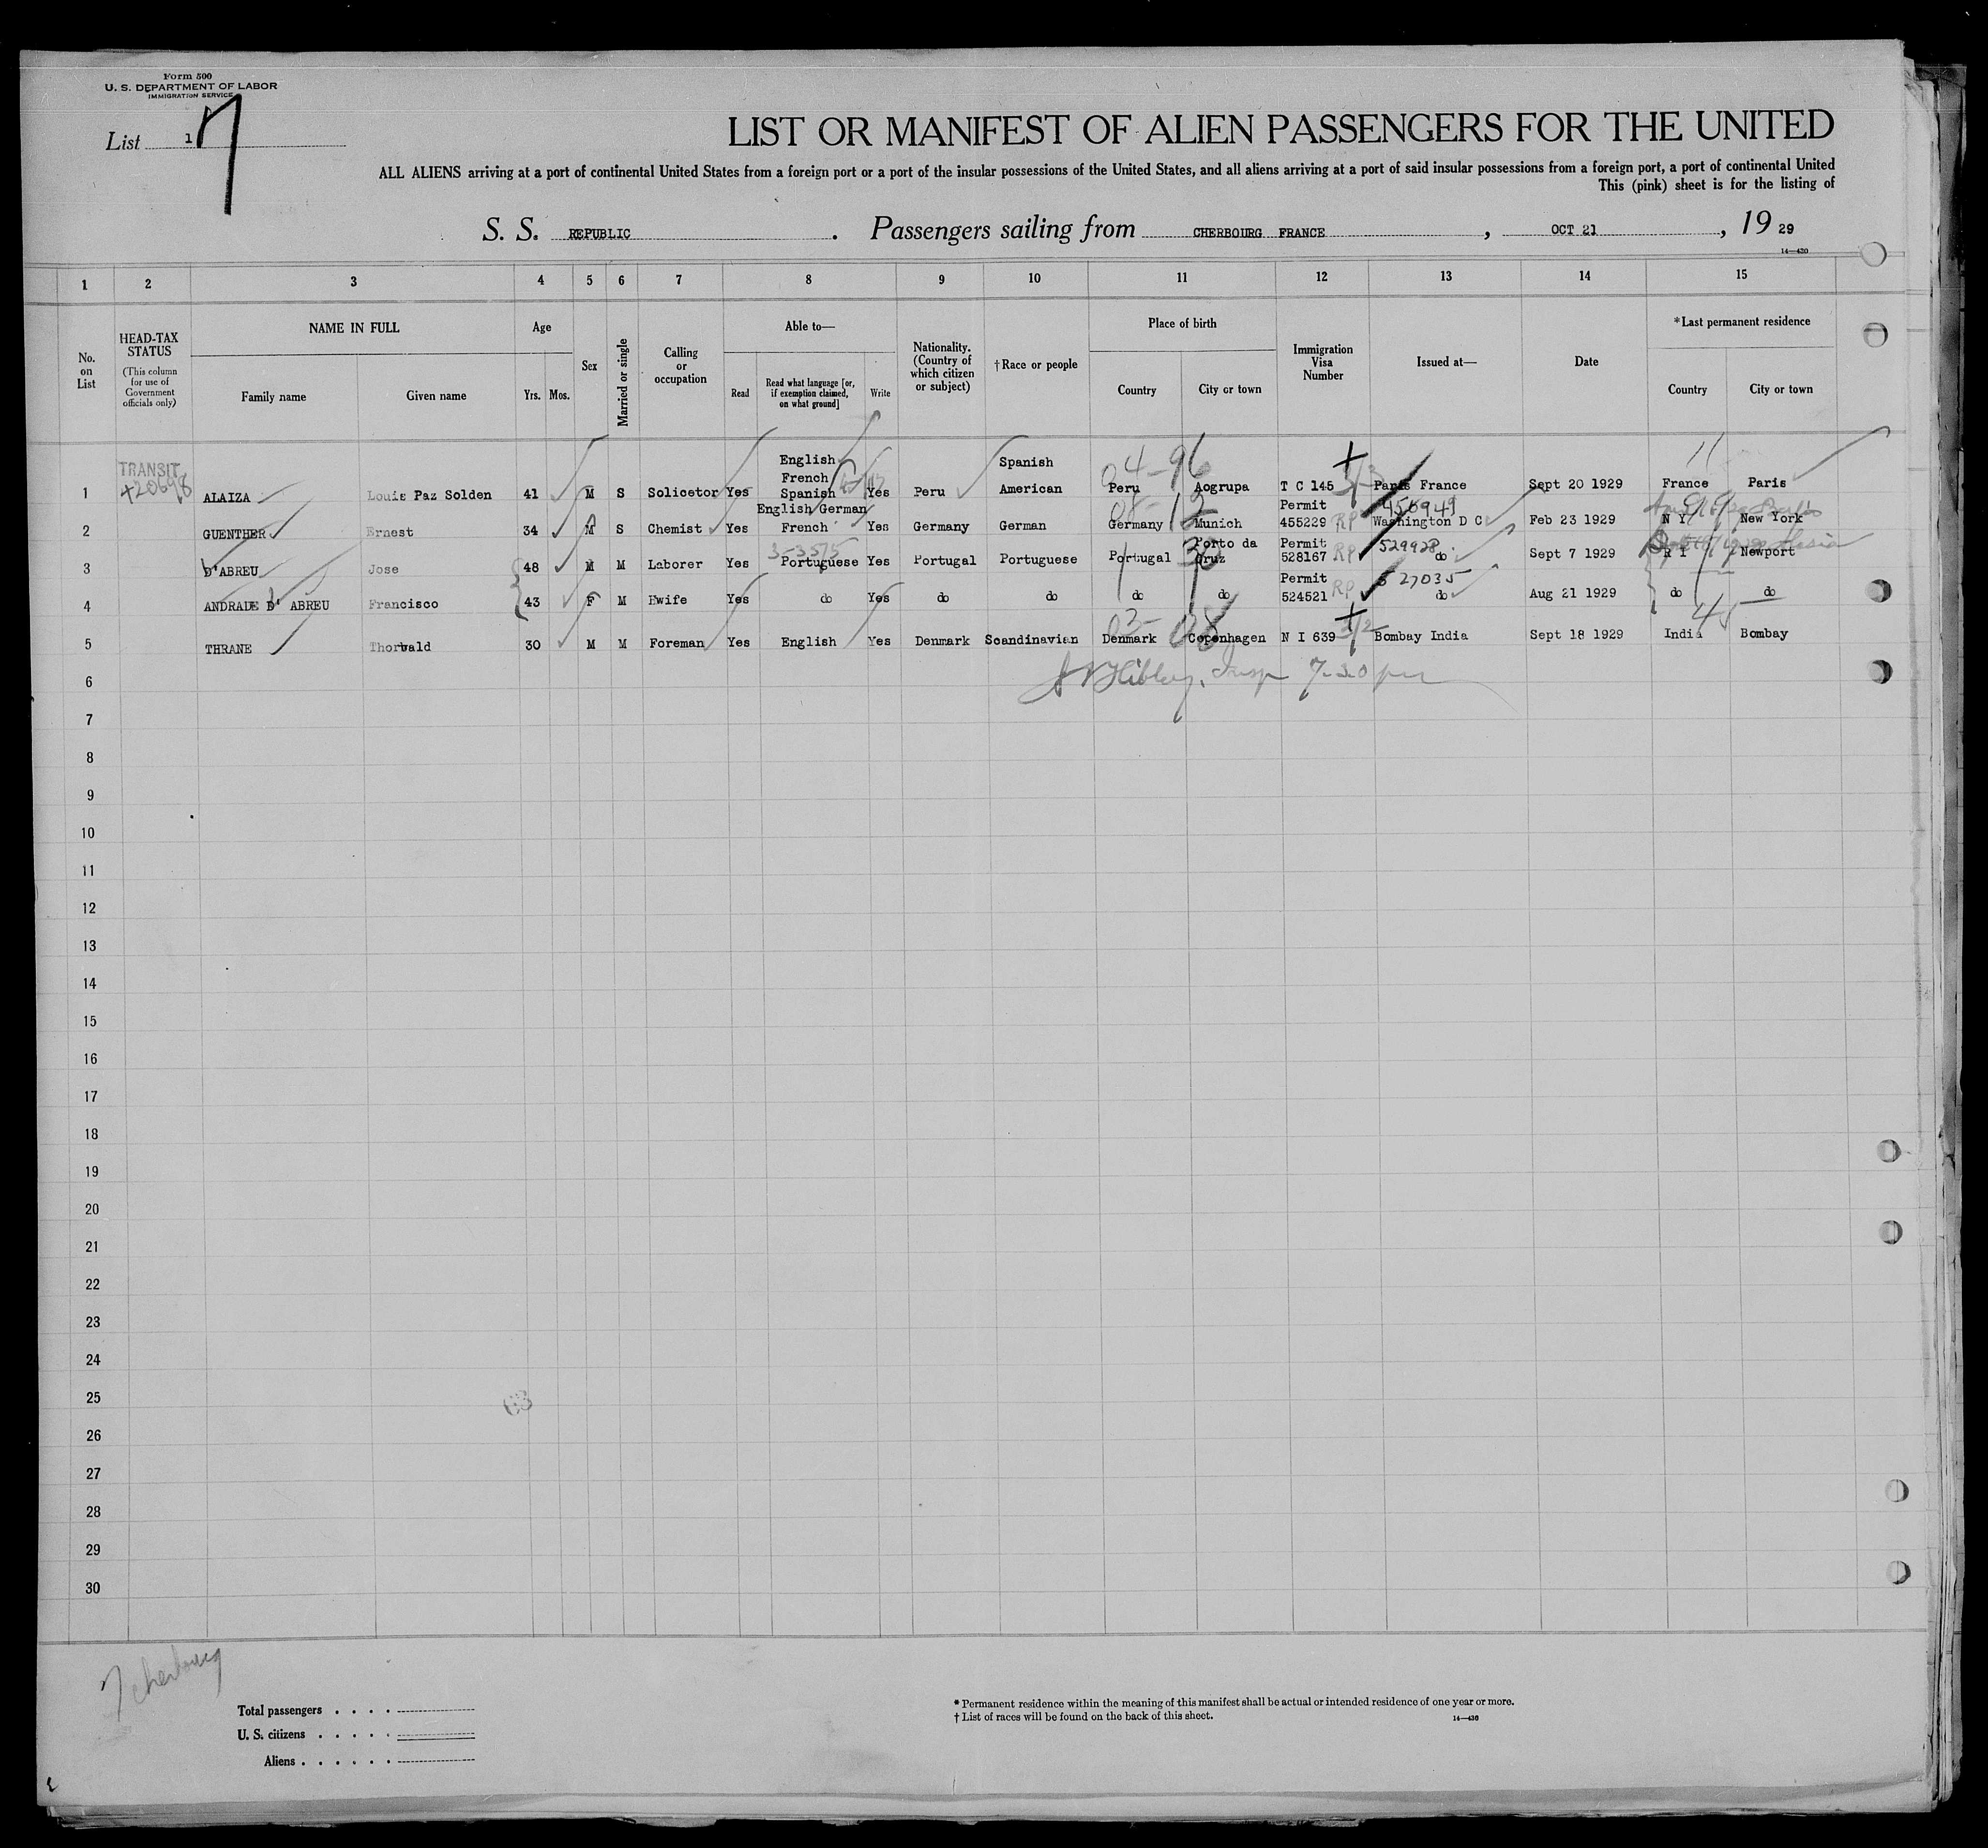 Form 500
U. S. DEPARTMENT OF LABOR
IMMIGRATION SERVICE
List 1
7
LIST OR MANIFEST OF ALIEN PASSENGERS FOR THE UNITED
ALL ALIENS arriving at a port of continental United States from a foreign port or a port of the insular possessions of the United States, and all aliens arriving at a port of said insular possessions from a foreign port, a port of continental United
This (pink) sheet is for the listing of
S. S. REPUBLIC . Passengers sailing from CHERBOURG FRANCE , OCT 21 , 19 29
14—430
1 2 3 4 5 6 7 8 9 10 11 12 13 14 15
No. on List
HEAD-TAX STATUS
(This column for use of Government officials only)
NAME IN FULL
Family name Given name
Age
Yrs. Mos.
Sex
Married or single
Calling or occupation
Able to—
Read
Read what language [or, if exemption claimed, on what ground]
Write
Nationality. (Country of which citizen or subject)
†Race or people
Place of birth
Country City or town
Immigration Visa Number
Issued at—
Date
*Last permanent residence
Country City or town
TRANSIT
04-96
11
1 ALAIZA Louis Paz Solden 41 M S Solicetor Yes English French Spanish Yes Peru Spanish American Peru Aogrupa T C 145 Paris France Sept 20 1929 France Paris
2 GUENTHER Ernest 34 M S Chemist Yes English German French Yes Germany German Germany Munich Permit 455229 RP Washington D C Feb 23 1929 N Y New York
3-3575
529928
3 D'ABREU Jose 48 M M Laborer Yes Portuguese Yes Portugal Portuguese Portugal Porto da Cruz Permit 528167 RP do Sept 7 1929 R I Newport
527035
4 ANDRADE D' ABREU Francisco 43 F M Hwife Yes do Yes do do do do Permit 524521 RP do Aug 21 1929 do do
03-08
5 THRANE Thorvald 30 M M Foreman Yes English Yes Denmark Scandinavian Denmark Copenhagen N I 639 3/2 Bombay India Sept 18 1929 India Bombay
6
7
8
9
10
11
12
13
14
15
16
17
18
19
20
21
22
23
24
25
26
27
28
29
30
63
7 cherbourg
Total passengers
U. S. citizens
Aliens
* Permanent residence within the meaning of this manifest shall be actual or intended residence of one year or more.
† List of races will be found on the back of this sheet.
14—430